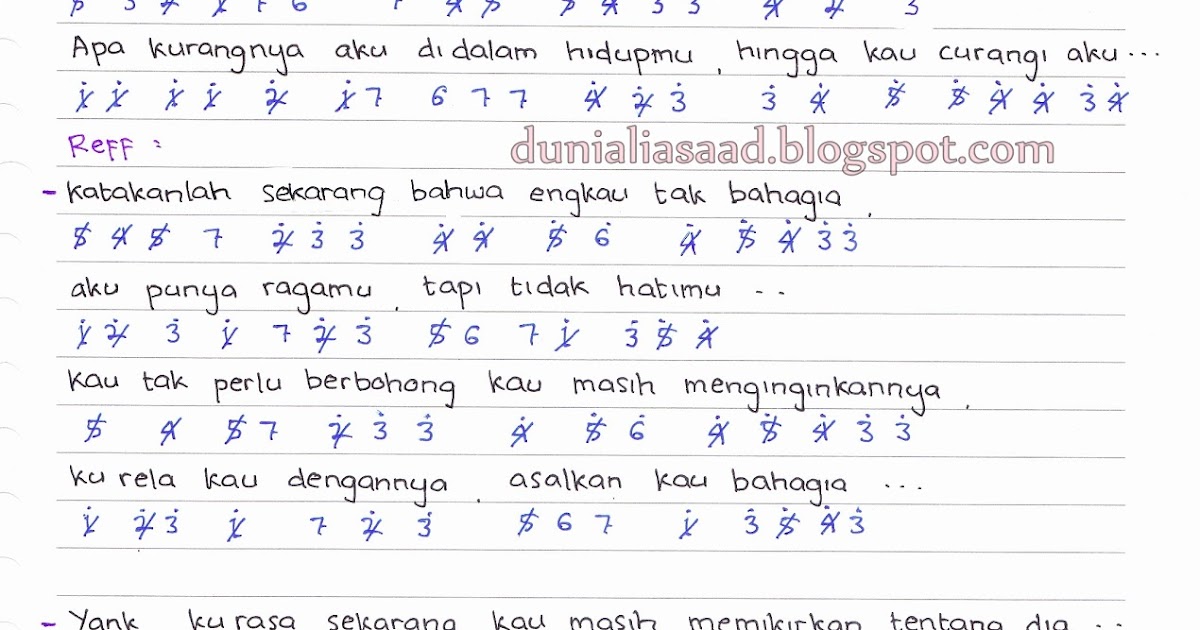 Apa kurangnya aku didalam hidupmu, hingga kau curangi aku...
1̸̇ 1̸̇ 1̸̇ 1̸̇ 2̸̇ 1̸̇ 7 6 7 7 4̸̇ 2̸̇ 3̇ 3̇ 4̸̇ 5̸̇ 5̸̇ 4̸̇ 4̸̇ 3̇ 4̸̇
Reff :
dunialiasaad.blogspot.com
- Katakanlah sekarang bahwa engkau tak bahagia,
5̸ 4̸ 5̸ 7 2̸̇ 3̇ 3̇ 4̸̇ 4̸̇ 5̸̇ 6̇ 4̸̇ 5̸̇ 4̸̇ 3̇ 3̇
aku punya ragamu, tapi tidak hatimu ..
1̸̇ 2̸̇ 3̇ 1̸̇ 7 2̸̇ 3̇ 5̸ 6 7 1̸̇ 3̇ 5̸̇ 4̸̇
Kau tak perlu berbohong kau masih menginginkannya,
5̸ 4̸ 5̸ 7 2̸̇ 3̇ 3̇ 4̸̇ 5̸̇ 6̇ 4̸̇ 5̸̇ 4̸̇ 3̇ 3̇
ku rela kau dengannya, asalkan kau bahagia ...
1̸̇ 2̸̇ 3̇ 1̸̇ 7 2̸̇ 3̇ 5̸ 6 7 1̸̇ 3̇ 5̸̇ 4̸̇ 3̇
- Yank, ku rasa sekarang kau masih memikirkan tentang dia ..